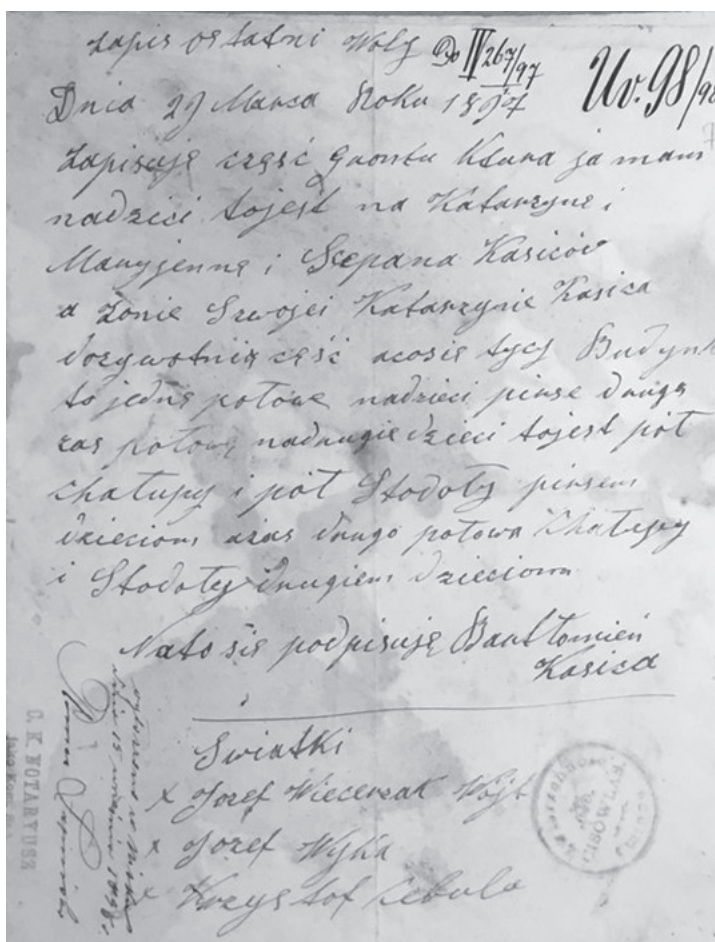 Zapis ostatni Woly
Do IV 267/97
Uv. 98/98
Dnia 29 Marca Roku 1897
Zapisuję część Grontu Ktura ja mam
nadzieci tojest na Katarzyne i
Maryjenne i Scepana Kasiców
a Zonie Szwojei Katarzynie Kasica
dozywotnię cęść acosię tycy Budynk
to jedne połowe nadzieci pirse druga
zas połowę nadrugie dzieci tojest pół
chałupy i pół Stodoły pirsem
dzieciom azas drugo połowa Chałupy
i Stodoły drugiem dzieciom
Nato się podpisuję Bartłomień
Kasica
Swiatki
x Jozef Wiecerzak Wojt
x Jozef Wyka
x Krzysztof Cebula
CISOWLAS
ogłoszono w Nisku
dnia 15 1898
Roman
C. K. NOTARYUSZ